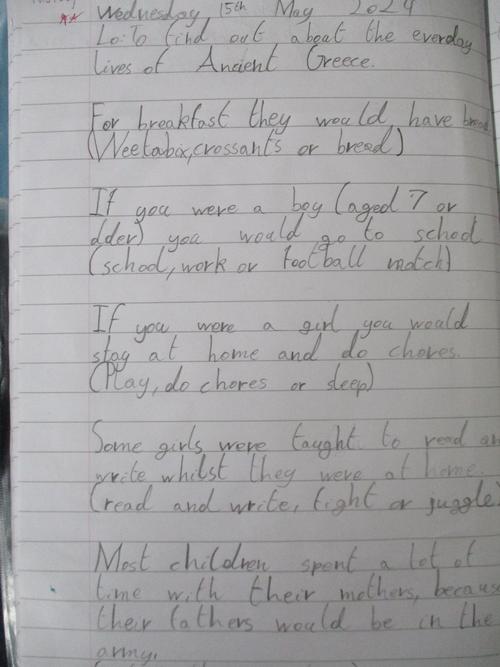 Wednesday 15th May 2024
Lo: To find out about the everday
lives of Ancient Greece.
For breakfast they would have bread
(Weetabix, crossants or bread)
If you were a boy (aged 7 or
older) you would go to school
(school, work or football match)
If you were a girl you would
stay at home and do chores.
(Play, do chores or sleep)
Some girls were taught to read an
write whilst they were at home.
(read and write, fight or juggle)
Most children spent a lot of
time with their mothers, becaus
their fathers would be in the
army.